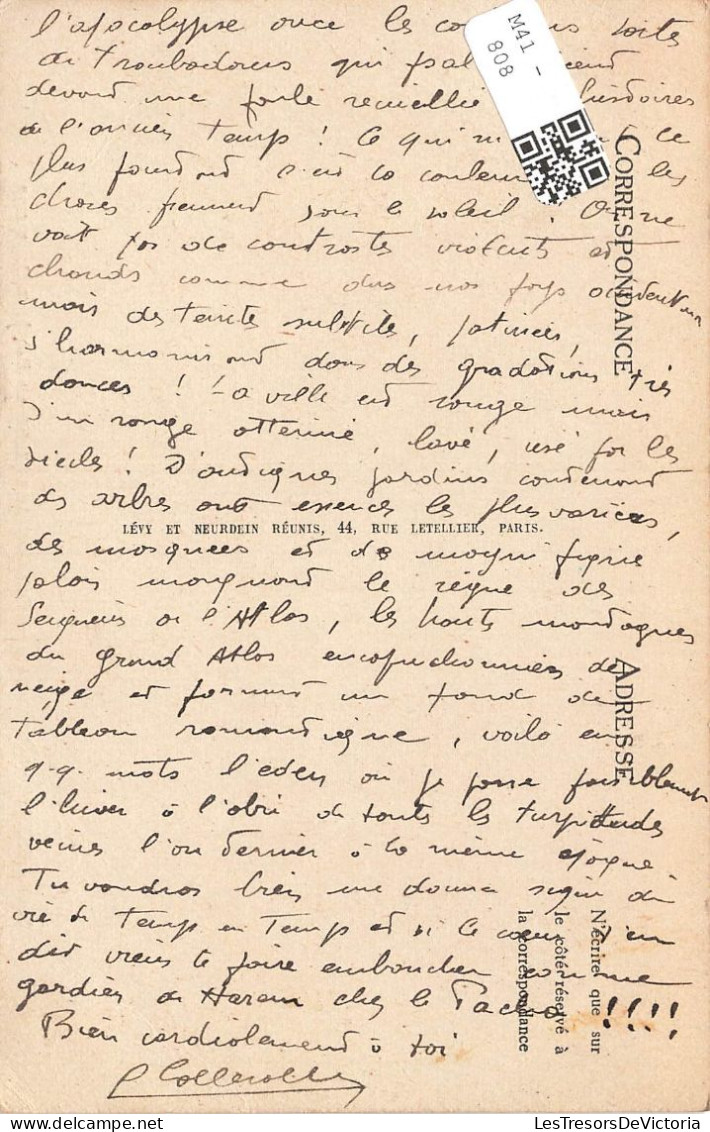 l'apocalypse avec les
de troubadours qui
devant une foule recueillie histoires
de l'ancien temps ! Ce qui
plus pourtant c'est la couleur les
choses prennent sous le soleil ! On ne
voit pas de contrastes violents et
chauds comme dans nos pays occidentaux
mais des teintes subtiles, patinées,
s'harmonisant dans des gradations très
douces ! La ville est rouge mais
d'un rouge atténué, lavé, usé par les
siècles ! D'antiques jardins contenant
des arbres aux essences les plus variées,
LÉVY ET NEURDEIN RÉUNIS, 44, RUE LETELLIER, PARIS.
des mosquées et de magnifique
palais marquant le règne des
Seigneurs de l'Atlas, les hauts montagnes
du grand Atlas encapuchonnées de
neige et formant un fond de
tableau romantique, voilà en
q.q. mots l'eden où je passe
l'hiver à l'abri de toutes les turpitudes
l'an dernier à la même époque.
Tu voudras bien me donner signe de
vie de temps en temps et si le coeur t'en
dit viens te faire embaucher comme
gardien de Harem chez le Pacha !!!!
Bien cordialement à toi
M41 -
808
CORRESPONDANCE
ADRESSE
N'écrire que sur
le côté réservé à
la correspondance
LesTresorsDeVictoria
Delcampe.net